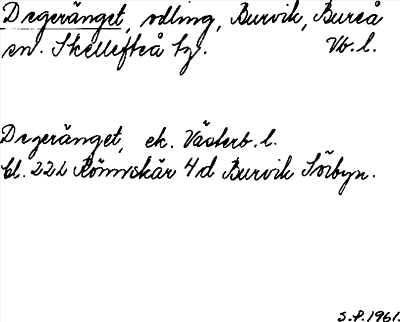 Degeränget, odling, Burvik, Bureå
sn. Skellefteå tg. Vb. l.
Degeränget, ek. Västerb. l.
bl. 22L Rönnskär 4d Burvik Sörbyn.
S.P. 1961.